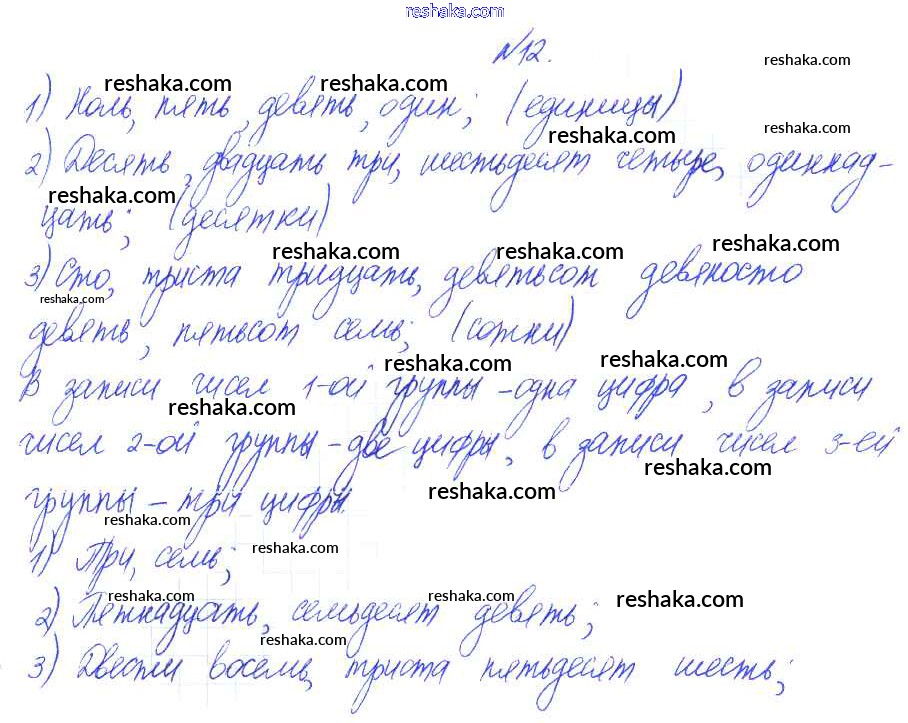 reshaka.com
№12.
reshaka.com reshaka.com reshaka.com
1) Ноль, пять, девять, один; (единицы)
reshaka.com reshaka.com
2) Десять, двадцать три, шестьдесят четыре, одиннад-
reshaka.com
цать; (десятки)
reshaka.com reshaka.com reshaka.com
3) Сто, триста тридцать, девятьсот девяносто
reshaka.com
девять, пятьсот семь; (сотни)
reshaka.com reshaka.com
В записи чисел 1-ой группы - одна цифра, в записи
reshaka.com
чисел 2-ой группы - две цифры, в записи чисел 3-ей
reshaka.com
reshaka.com
группы - три цифры.
reshaka.com
reshaka.com
1) Три, семь;
reshaka.com reshaka.com reshaka.com
2) Пятнадцать, семьдесят девять;
reshaka.com
3) Двести восемь, триста пятьдесят шесть;